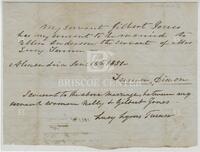 My servant Gilbert Jones
has my consent to be married to
Ellen Anderson the servant of Mrs
Lucy Turner
Alexandria Jan
Turner Dixon
I consent to the above marriage between my
servant woman Nelly & Gilbert Jones
Lucy Lyons Turner
BRISCOE CENTER